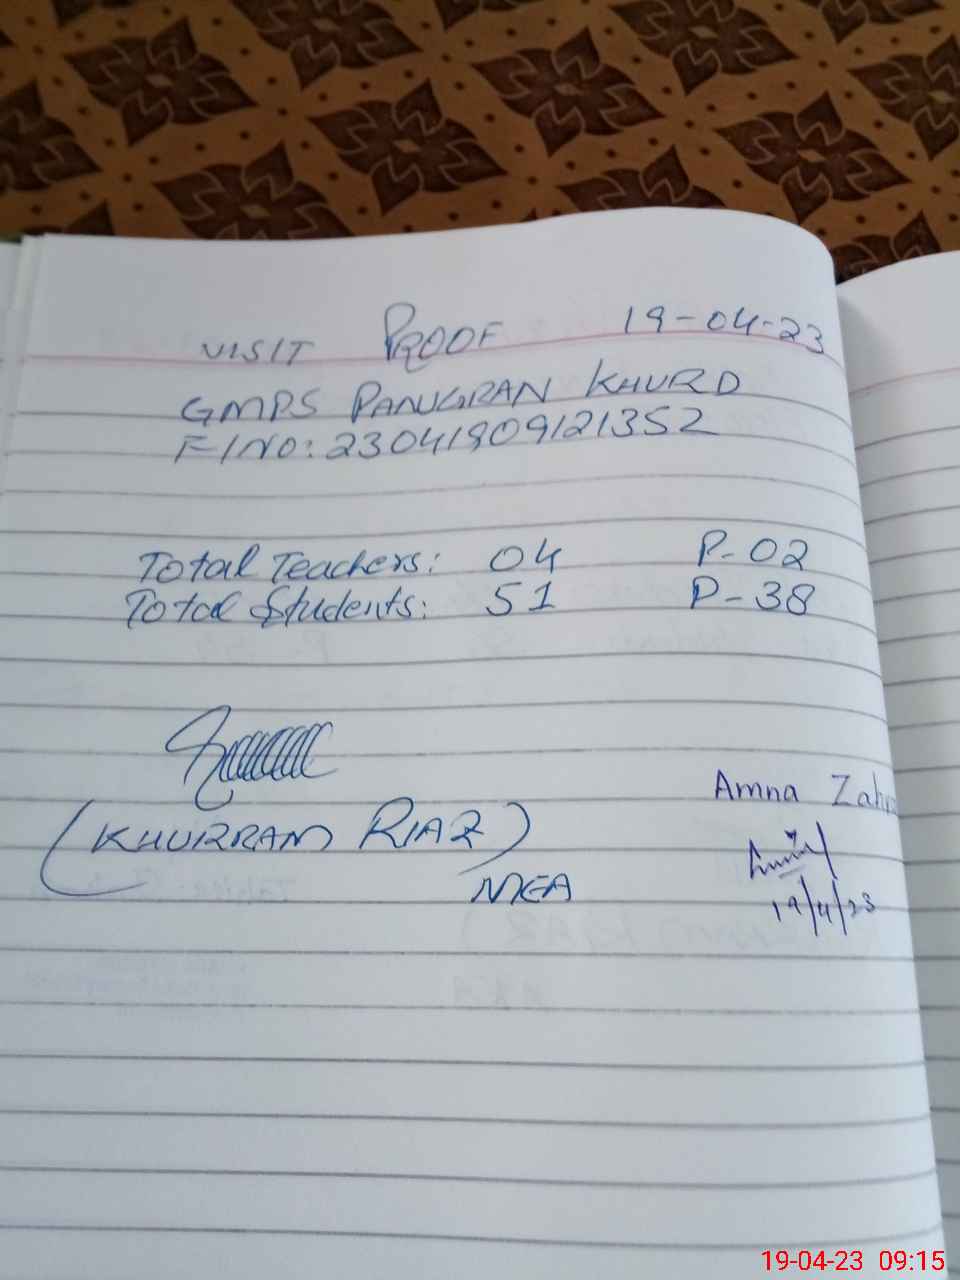 VISIT PROOF 19-04-23
GMPS PANUGRAN KHURD
F/NO: 23041909121352
Total Teachers: 04 P-02
Total Students: 51 P-38
(KHURRAM RIAZ)
MEA
Amna Zahra
19/4/23
19-04-23 09:15